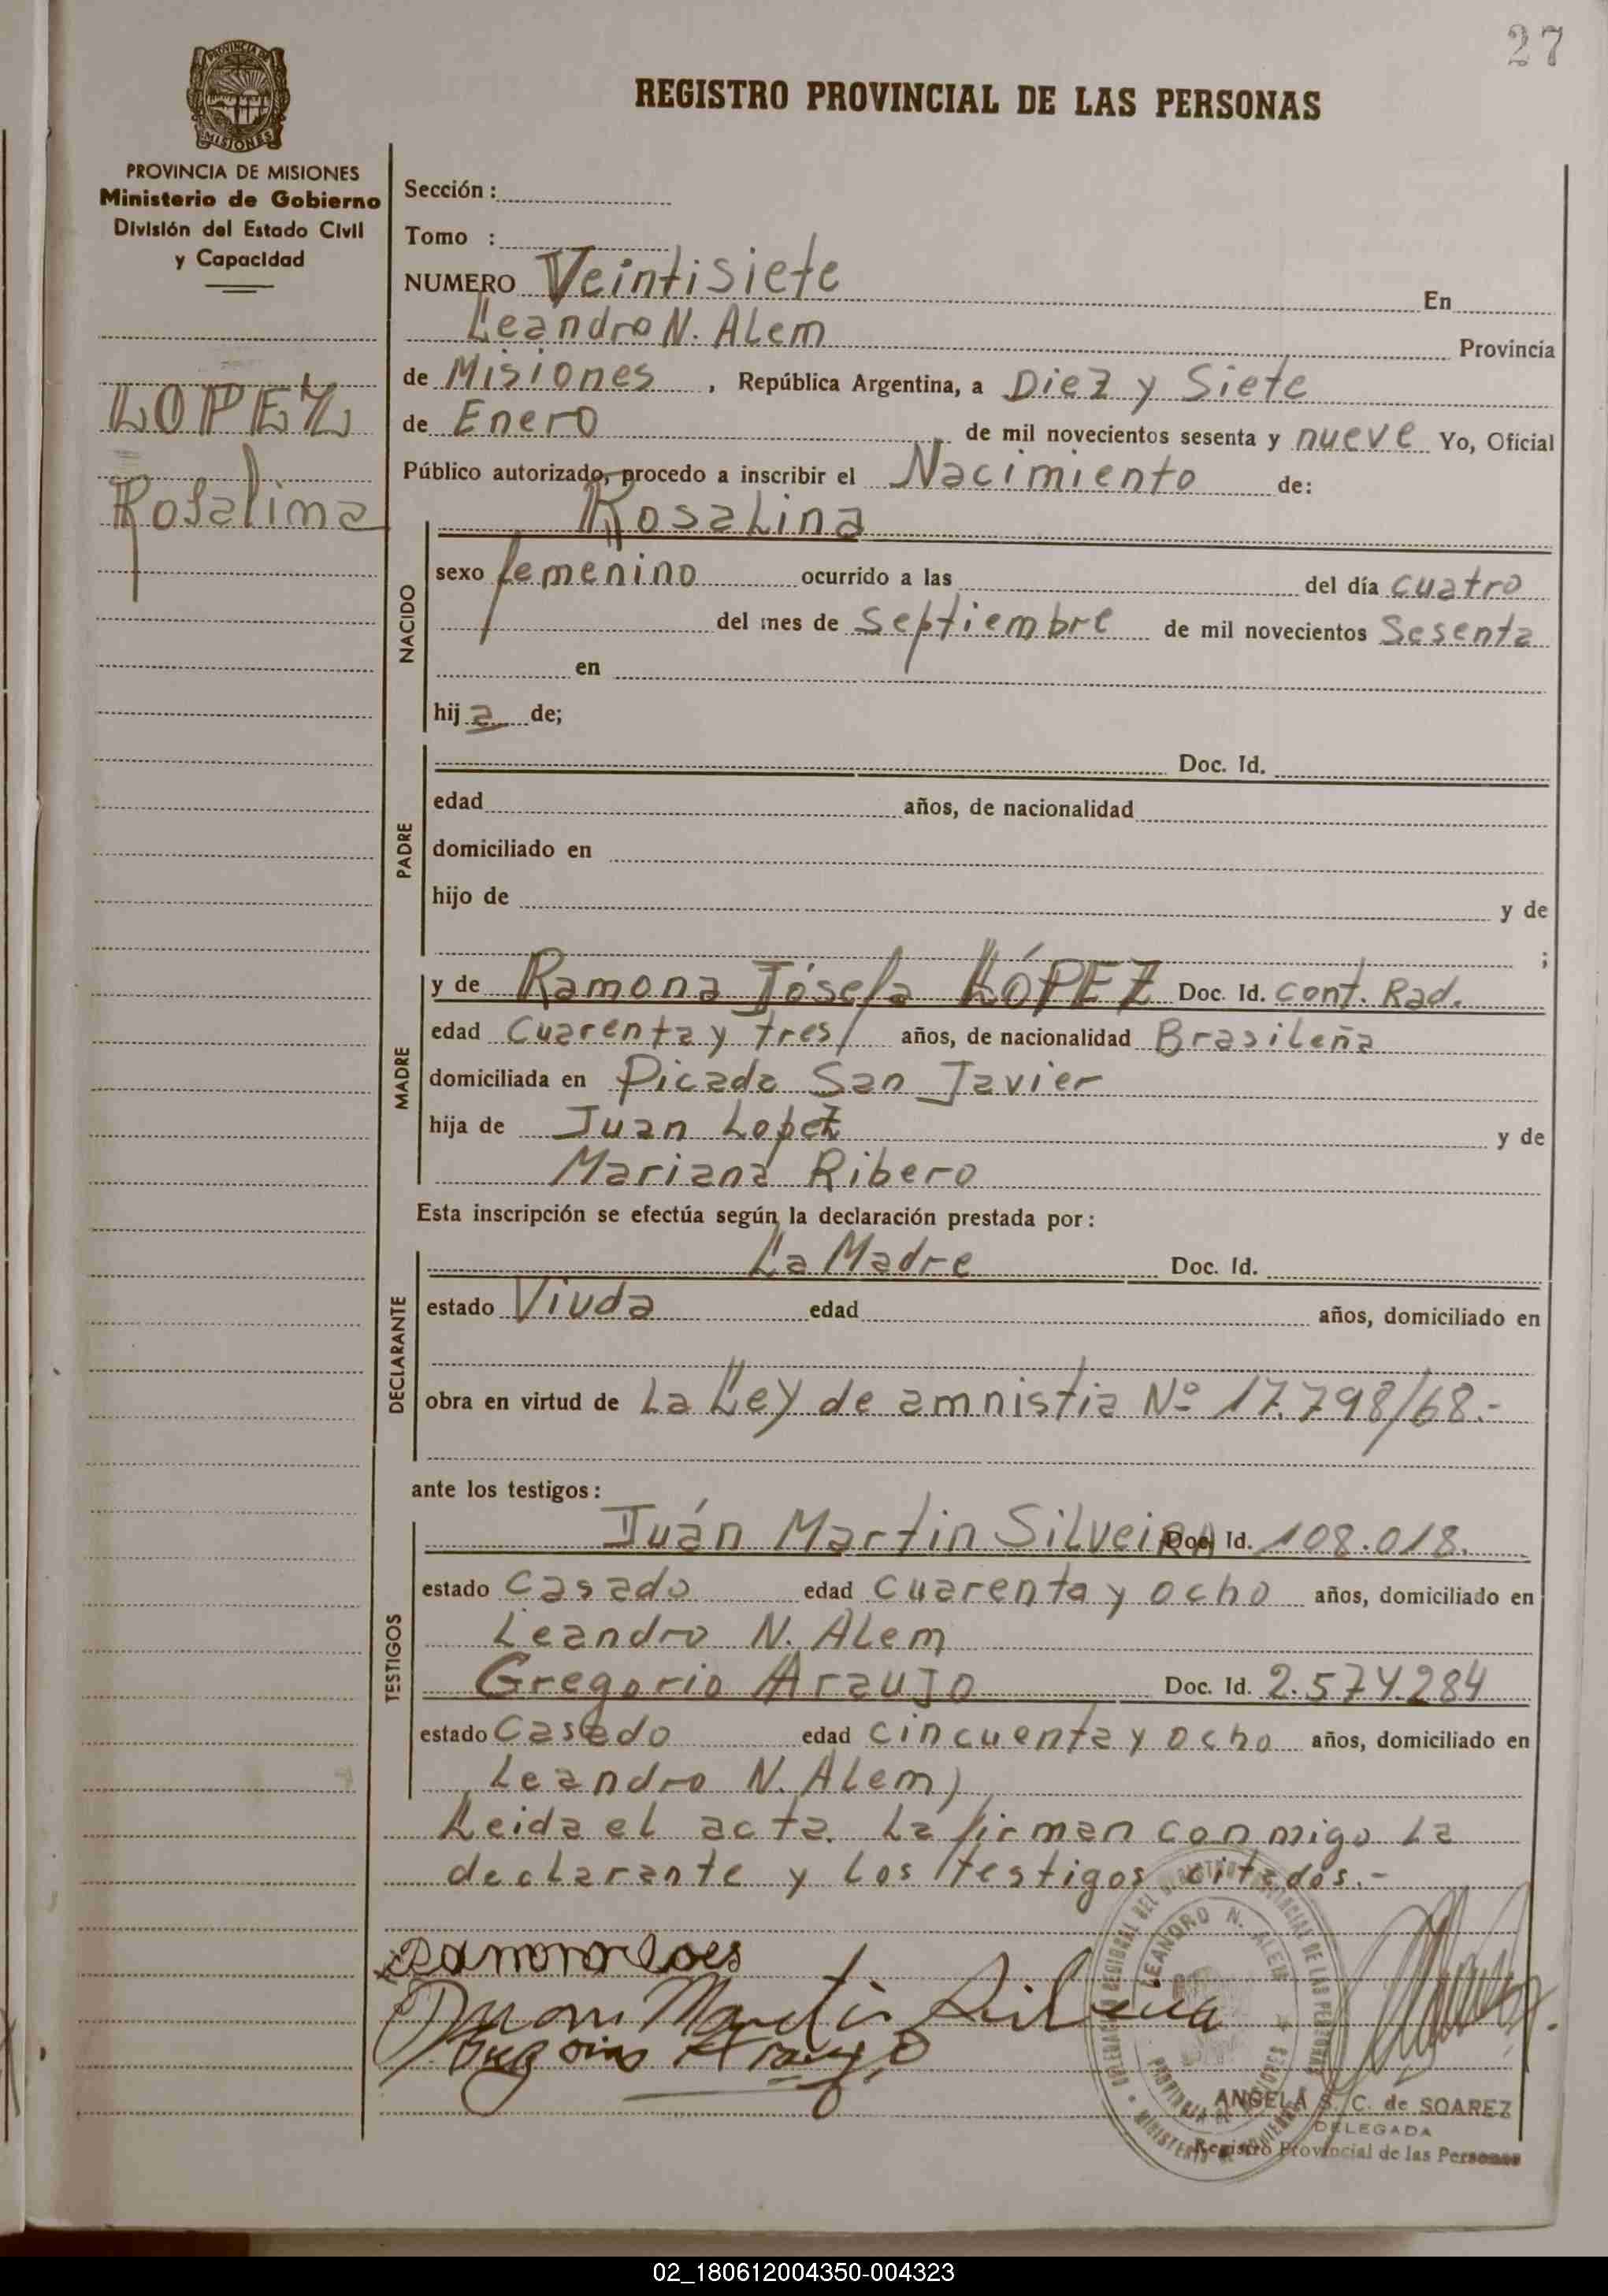 27
PROVINCIA DE
MISIONES
REGISTRO PROVINCIAL DE LAS PERSONAS
PROVINCIA DE MISIONES
Ministerio de Gobierno
División del Estado Civil
y Capacidad
LOPEZ
Rosalina
Sección :
Tomo :
NUMERO Veintisiete En
Leandro N. ALem Provincia
de Misiones , República Argentina, a Diez y Siete
de Enero de mil novecientos sesenta y nueve Yo, Oficial
Público autorizado, procedo a inscribir el Nacimiento de:
NACIDO
RosaLina
sexo femenino ocurrido a las del día cuatro
del mes de Septiembre de mil novecientos Sesenta
en
hij a de;
PADRE
Doc. Id.
edad años, de nacionalidad
domiciliado en
hijo de y de
;
MADRE
y de Ramona Jósefa LÓPEZ Doc. Id. cont. Rad.
edad Cuarenta y tres/ años, de nacionalidad Brasileña
domiciliada en Picada San Javier
hija de Juan Lopez y de
Mariana Ribero
Esta inscripción se efectúa según la declaración prestada por :
DECLARANTE
La Madre Doc. Id.
estado Viuda edad años, domiciliado en
obra en virtud de La Ley de amnistia Nº 17.798/68.-
ante los testigos :
TESTIGOS
Juán Martin SilveiRA Doc. Id. 108.018.
estado Casado edad cuarenta y ocho años, domiciliado en
Leandro N. ALem
Gregorio Araujo Doc. Id. 2.574.284
estado Casado edad cincuenta y ocho años, domiciliado en
Leandro N. ALem)
Leida el acta. La firman con migo La
declarante y Los testigos citados.-
Ramona Loes
Juan Martin Silveira
Gregorio Araujo
LEANDRO N. ALEM
PROVINCIA DE MISIONES
ANGELA S. C. de SOAREZ
DELEGADA
Registro Provincial de las Personas
02_180612004350-004323